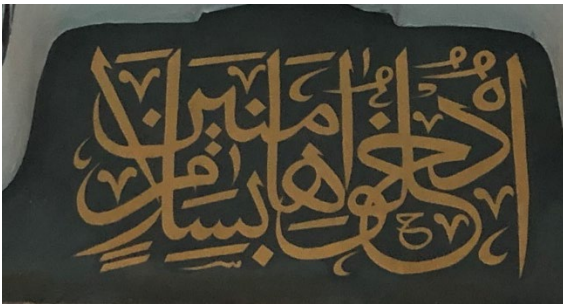 ادخلوها بسلام امنين